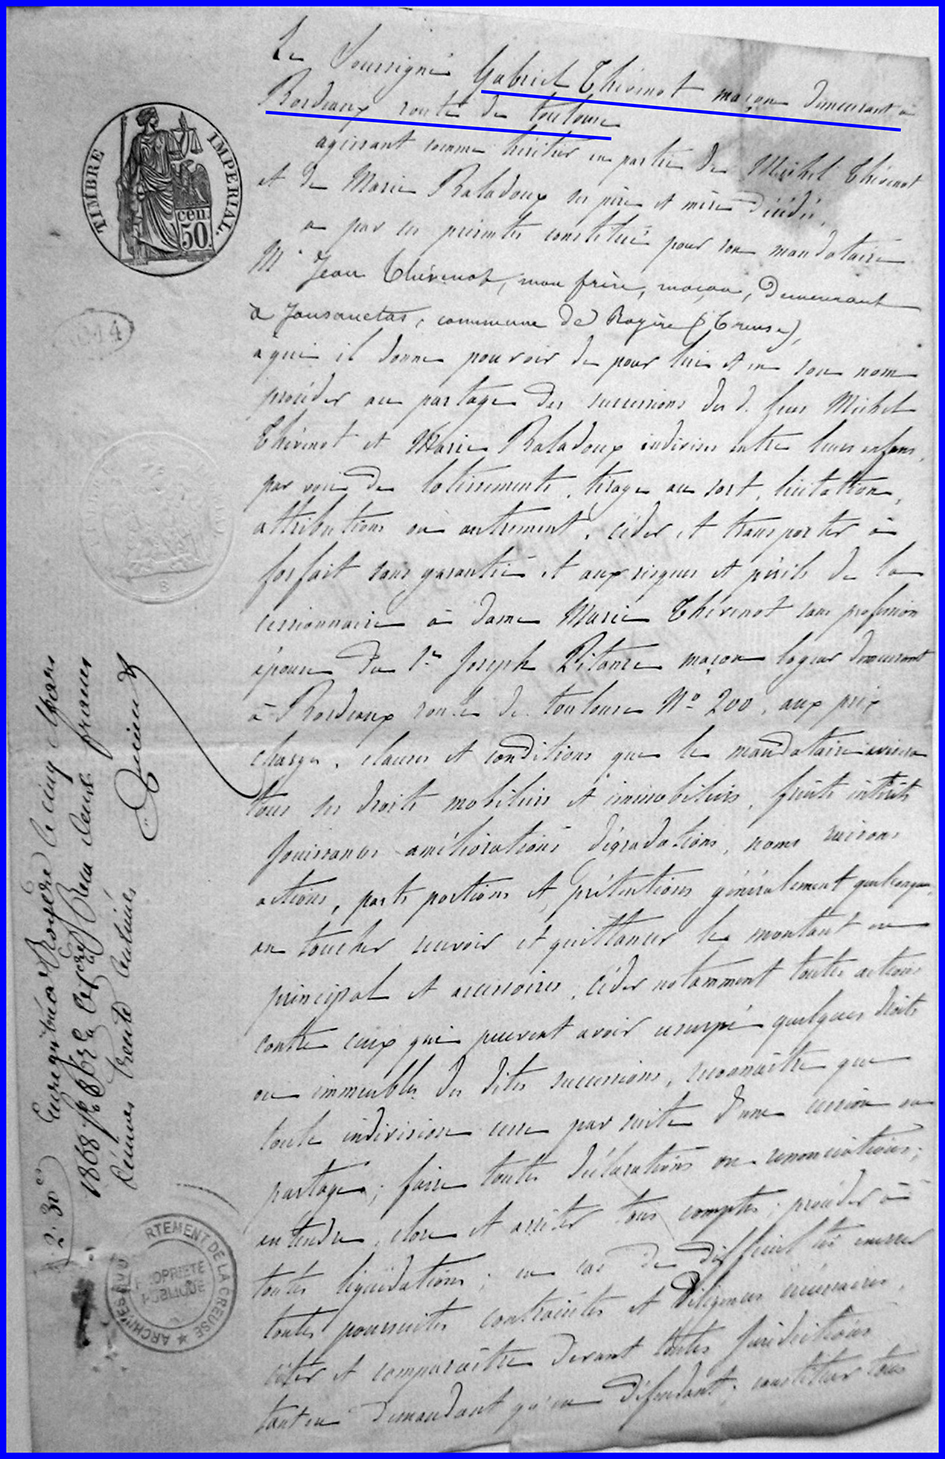 Le Soussigné Gabriel Thévenot maçon demeurant à
Bordeaux route de toulouse
agissant comme héritier en partie de Michel Thévenot
et de Marie Baladoux ses père et mère décédés.
a par ces présentes constitué pour son mandataire
Mr Jean Thévenot, mon frère, maçon, demeurant
à Jansanetas, commune de Royère (Creuse),
à qui il donne pouvoir de pour lui et en son nom
procéder au partage des successions des d. feus Michel
Thévenot et Marie Baladoux indivises entre leurs enfans,
par voie de lotissements, tirage au sort, licitation,
attributions ou autrement, céder et transporter à
forfait sans garantie et aux risques et périls de la
cessionnaire à dame Marie Thévenot sans profession
épouse du Sr Joseph Pitance maçon logeur demeurant
à Bordeaux route de toulouse No 200, aux prix
charges, clauses et conditions que le mandataire avisera
tous ses droits mobiliers et immobiliers fruits intérêts
jouissances améliorations dégradations, noms raisons
actions, parts portions et prétentions généralement quelconques,
en toucher recevoir et quittancer le montant en
principal et accessoires, céder notamment toutes actions
contre ceux qui peuvent avoir usurpé quelques droits
ou immeubles des dites successions, reconnaître que
toute indivision cesse par suite d'une cession ou
partage; faire toutes déclarations ou renonciations;
entendre, clore et arrêter tous comptes; procéder à
toutes liquidations; en cas de difficultés exercer
toutes poursuites contraintes et diligences nécessaires,
citer et comparaître devant toutes juridictions
tant en demandant qu'en défendant; constituer tous
TIMBRE IMPERIAL.
50 cen.
Enregistré à Royère le cinq Mars
1868 Reçu deux francs
décimes trente centimes
2.30
ARCHIVES DU DEPARTEMENT DE LA CREUSE
PROPRIETE
PUBLIQUE